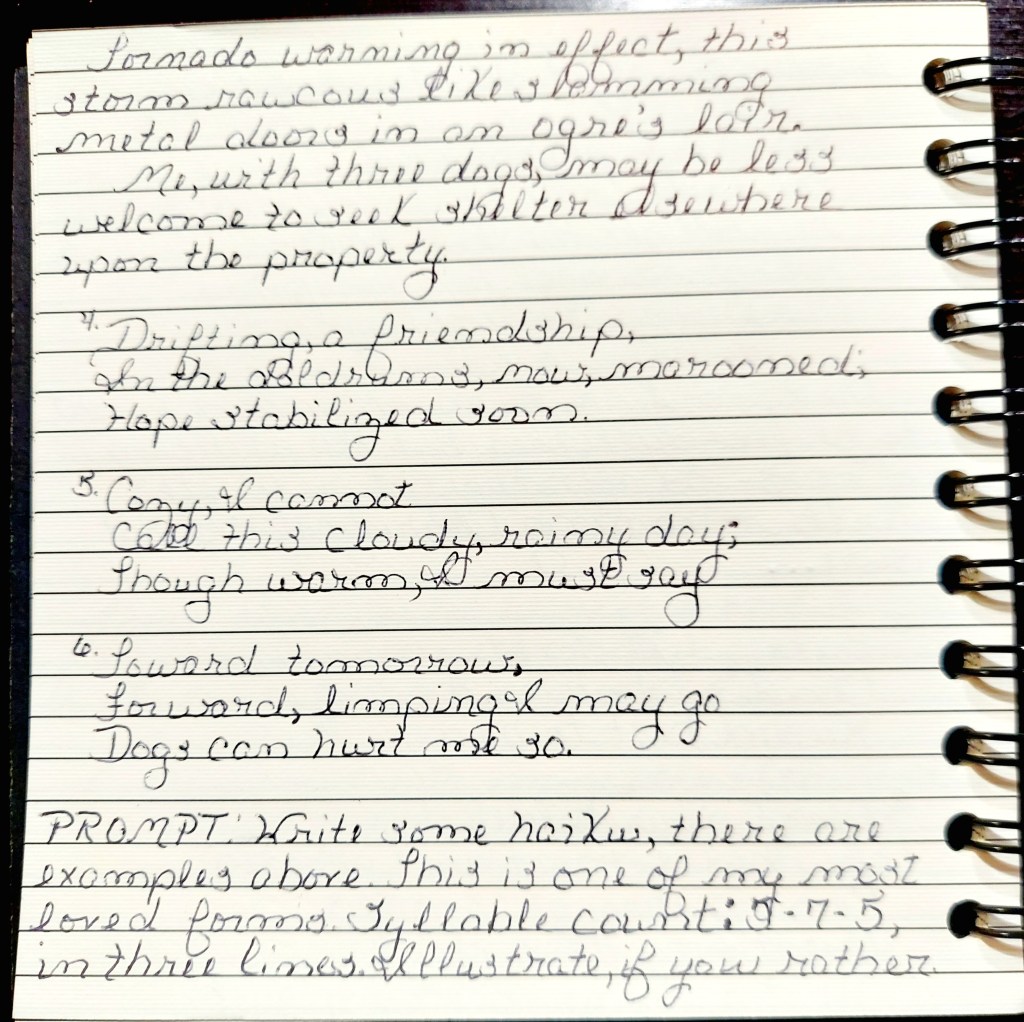 Tornado warning in effect, this
storm raucous like slamming
metal doors in an ogre's lair.
Me, with three dogs, may be less
welcome to seek shelter elsewhere
upon the property.
4. Drifting, a friendship,
In the doldrums, now, marooned;
Hope stabilized soon.
5. Cozy, I cannot
Call this cloudy, rainy day;
Though warm, I must say
6. Toward tomorrow,
Forward, limping I may go
Dogs can hurt me so.
PROMPT: Write some haiku, there are
examples above. This is one of my most
loved forms. Syllable count: 5-7-5,
in three lines. Illustrate, if you rather.